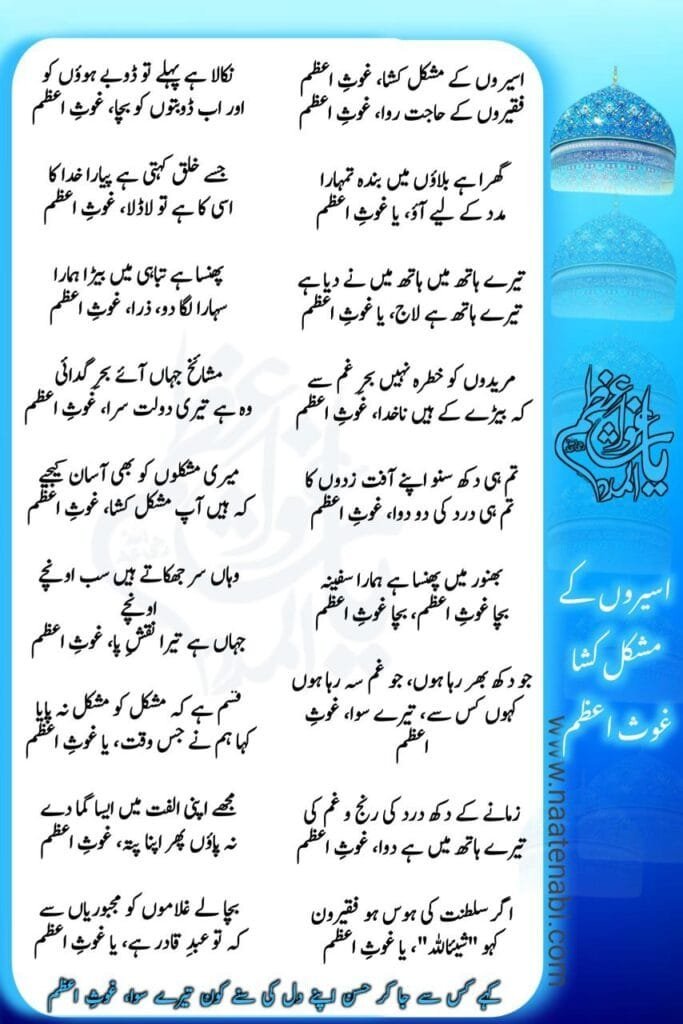 اسیروں کے مشکل کشا، غوثِ اعظم
فقیروں کے حاجت روا، غوثِ اعظم
گھرا ہے بلاؤں میں بندہ تمہارا
مدد کے لیے آؤ، یا غوثِ اعظم
تیرے ہاتھ میں ہاتھ میں نے دیا ہے
تیرے ہاتھ ہے لاج، یا غوثِ اعظم
مریدوں کو خطرہ نہیں بحرِ غم سے
کہ بیڑے کے ہیں ناخدا، غوثِ اعظم
تم ہی دکھ سنو اپنے آفت زدوں کا
تم ہی درد کی دو دوا، غوثِ اعظم
بھنور میں پھنسا ہے ہمارا سفینہ
بچا غوثِ اعظم، بچا غوثِ اعظم
جو دکھ بھر رہا ہوں، جو غم سہ رہا ہوں
کہوں کس سے، تیرے سوا، غوثِ
اعظم
زمانے کے دکھ درد کی رنج و غم کی
تیرے ہاتھ میں ہے دوا، غوثِ اعظم
اگر سلطنت کی ہوس ہو فقیرون
کہو "شیئاللہ"، یا غوثِ اعظم
نکالا ہے پہلے تو ڈوبے ہوؤں کو
اور اب ڈوبتوں کو بچا، غوثِ اعظم
جسے خلق کہتی ہے پیارا خدا کا
اسی کا ہے تو لاڈلا، غوثِ اعظم
پھنسا ہے تباہی میں بیڑا ہمارا
سہارا لگا دو، ذرا، غوثِ اعظم
مشائخ جہاں آئے بحرِ گدائی
وہ ہے تیری دولت سرا، غوثِ اعظم
میری مشکلوں کو بھی آسان کیجیے
کہ ہیں آپ مشکل کشا، غوثِ اعظم
وہاں سر جھکاتے ہیں سب اونچے
اونچے
جہاں ہے تیرا نقشِ پا، غوثِ اعظم
قسم ہے کہ مشکل کو مشکل نہ پایا
کہا ہم نے جس وقت، یا غوثِ اعظم
مجھے اپنی الفت میں ایسا گما دے
نہ پاؤں پھر اپنا پتہ، غوثِ اعظم
بچا لے غلاموں کو مجبوریاں سے
کہ تو عبدِ قادر ہے، یا غوثِ اعظم
کہے کس سے جا کر حسن اپنے دل کی سنے کون تیرے سوا، غوثِ اعظم
اسیروں کے
مشکل کشا
غوث اعظم
www.naatenabi.com